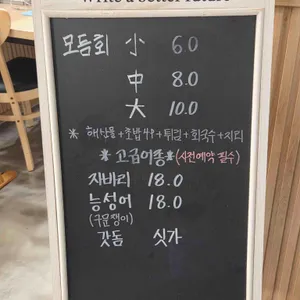 Write a better future
모듬회 小 6.0
中 8.0
大 10.0
* 해산물+초밥4P+튀김+회국수+지리
*고급어종*(사전예약 필수)
자바리 18.0
능성어 18.0
(구문쟁이)
갓돔 싯가